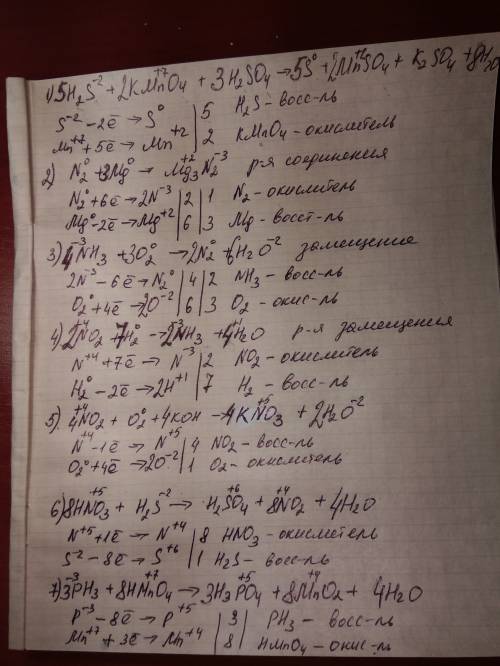 1) 5H₂S⁻² + 2KMn⁺⁷O₄ + 3H₂SO₄ → 5S⁰ + 2Mn⁺²SO₄ + K₂SO₄ + 8H₂O
S⁻² - 2ē → S⁰ | 5 H₂S - восс-ль
Mn⁺⁷ + 5ē → Mn⁺² | 2 KMnO₄ - окислитель
2) N₂⁰ + 3Mg⁰ → Mg₃⁺²N₂⁻³ р-я соединения
N₂⁰ + 6ē → 2N⁻³ | 2 | 1 N₂ - окислитель
Mg⁰ - 2ē → Mg⁺² | 6 | 3 Mg - восст-ль
3) 4N⁻³H₃ + 3O₂⁰ → 2N₂⁰ + 6H₂O⁻² замещение
2N⁻³ - 6ē → N₂⁰ | 4 | 2 NH₃ - восс-ль
O₂⁰ + 4ē → 2O⁻² | 6 | 3 O₂ - окис-ль
4) 2N⁺⁴O₂ + 7H₂⁰ → 2N⁻³H₃ + 4H⁺¹₂O р-я замещения
N⁺⁴ + 7ē → N⁻³ | 2 NO₂ - окислитель
H₂⁰ - 2ē → 2H⁺¹ | 7 H₂ - восс-ль
5) 4N⁺⁴O₂ + O₂⁰ + 4KOH → 4KN⁺⁵O₃ + 2H₂O⁻²
N⁺⁴ - 1ē → N⁺⁵ | 4 NO₂ - восс-ль
O₂⁰ + 4ē → 2O⁻² | 1 O₂ - окислитель
6) 8HN⁺⁵O₃ + H₂S⁻² → H₂S⁺⁶O₄ + 8N⁺⁴O₂ + 4H₂O
N⁺⁵ + 1ē → N⁺⁴ | 8 HNO₃ - окислитель
S⁻² - 8ē → S⁺⁶ | 1 H₂S - восс-ль
7) 3P⁻³H₃ + 8HMn⁺⁷O₄ → 3H₃P⁺⁵O₄ + 8Mn⁺⁴O₂ + 4H₂O
P⁻³ - 8ē → P⁺⁵ | 3 | PH₃ - восс-ль
Mn⁺⁷ + 3ē → Mn⁺⁴ | 8 | HMnO₄ - окис-ль